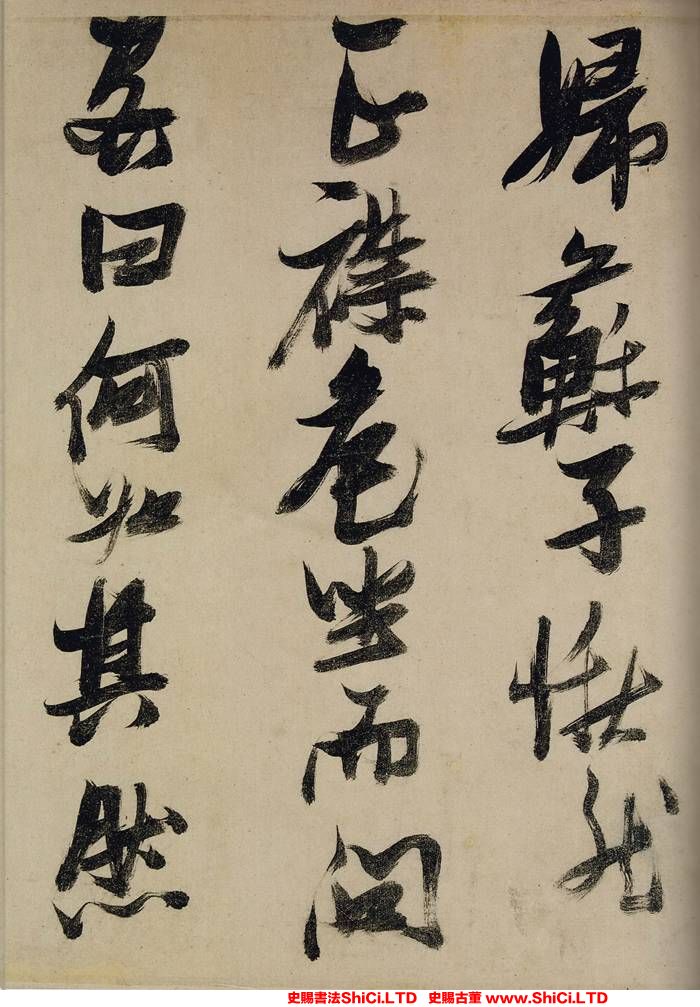 婦蘇子愀然
正襟危坐而問
客曰何為其然
史賜書法ShiCi.LTD 史賜古董 www.ShiCi.LTD